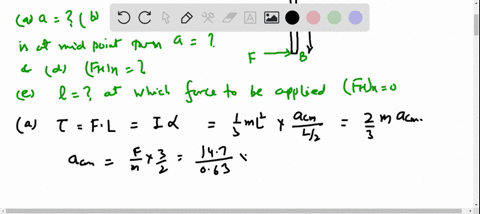 (a) a = ? (b)
is at mid point then a = ?
& (d) (FH)n = ?
F B
(e) l = ? at which force to be applied (FH)n = 0
(a) τ = F·L = Iα = 1/3 mL² × acm/(L/2) = 2/3 m acm.
acm = F/m × 3/2 = 14.7/0.63 ×